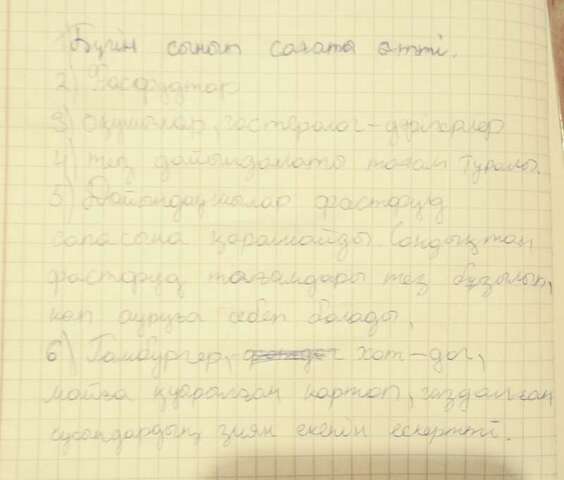 1) Бүгін сынып сағаты өтті.
2) Фасфудтар
3) оқушылар, гастеролог-дәрігерлер
4) тез дайындалатын тағам туралы.
5) Дайындаушылар фастфуд
сапасына қарамайды. Сондықтан
фастфуд тағамдары тез бұзылып,
көп ауруға себеп болады.
6) Гамбургер, хот-дог,
майға қуырылған картоп, газдалған
сусындардың зиян екенін ескертті.